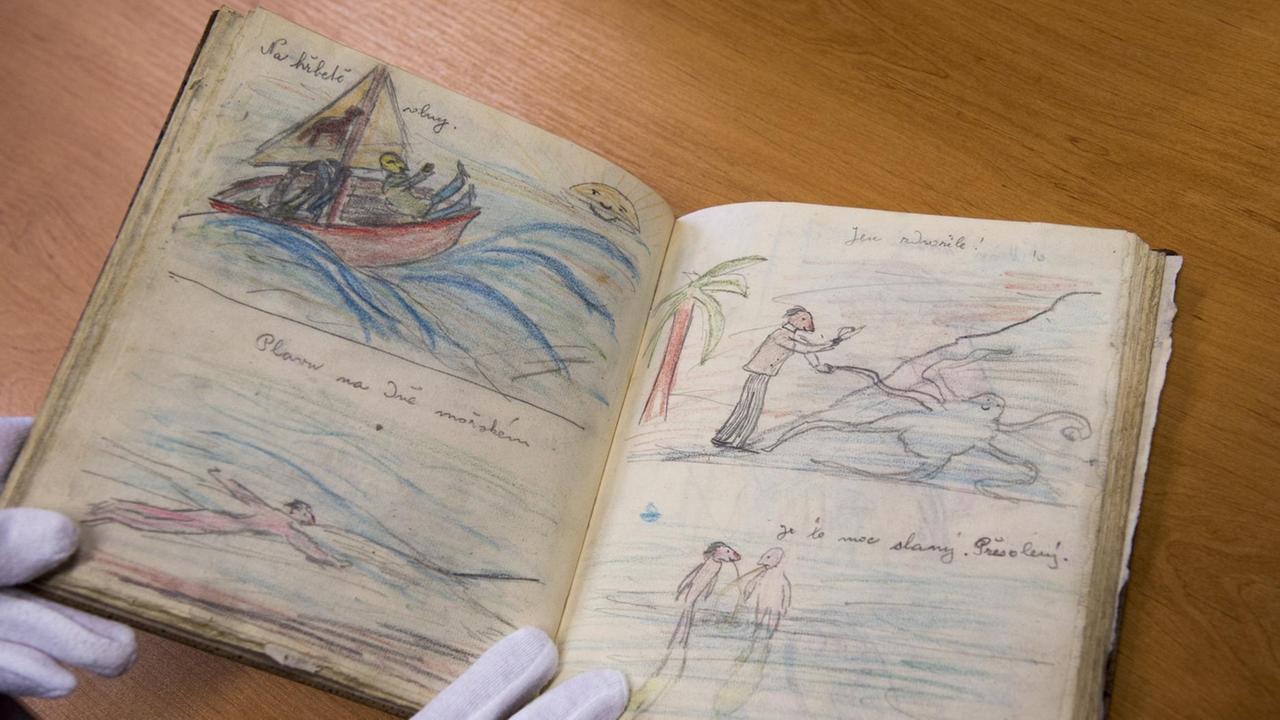 Na hřbetě
vlny.
Plavu na dně mořském
Jen
je to moc slaný. Přesolený.